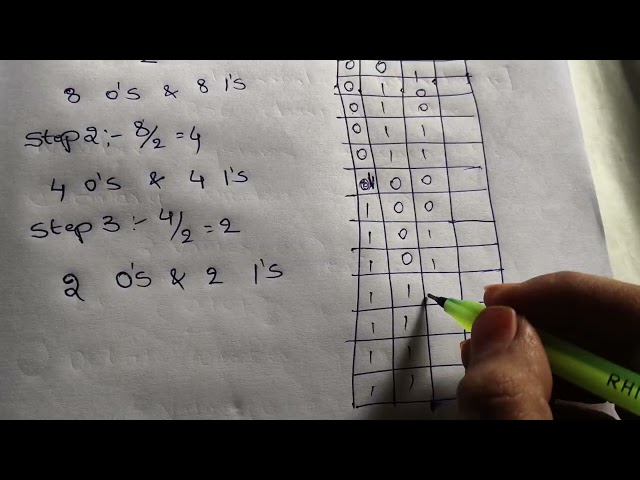 8 0's & 8 1's
Step 2:- 8/2 = 4
4 0's & 4 1's
Step 3:- 4/2 = 2
2 0's & 2 1's
0 0 1
0 1 0
0 1 0
0 1 1
0 1 1
0 0
1 0 0
1 0 1
1 0 1
1 1
1 1
1 1
1 1
RHI